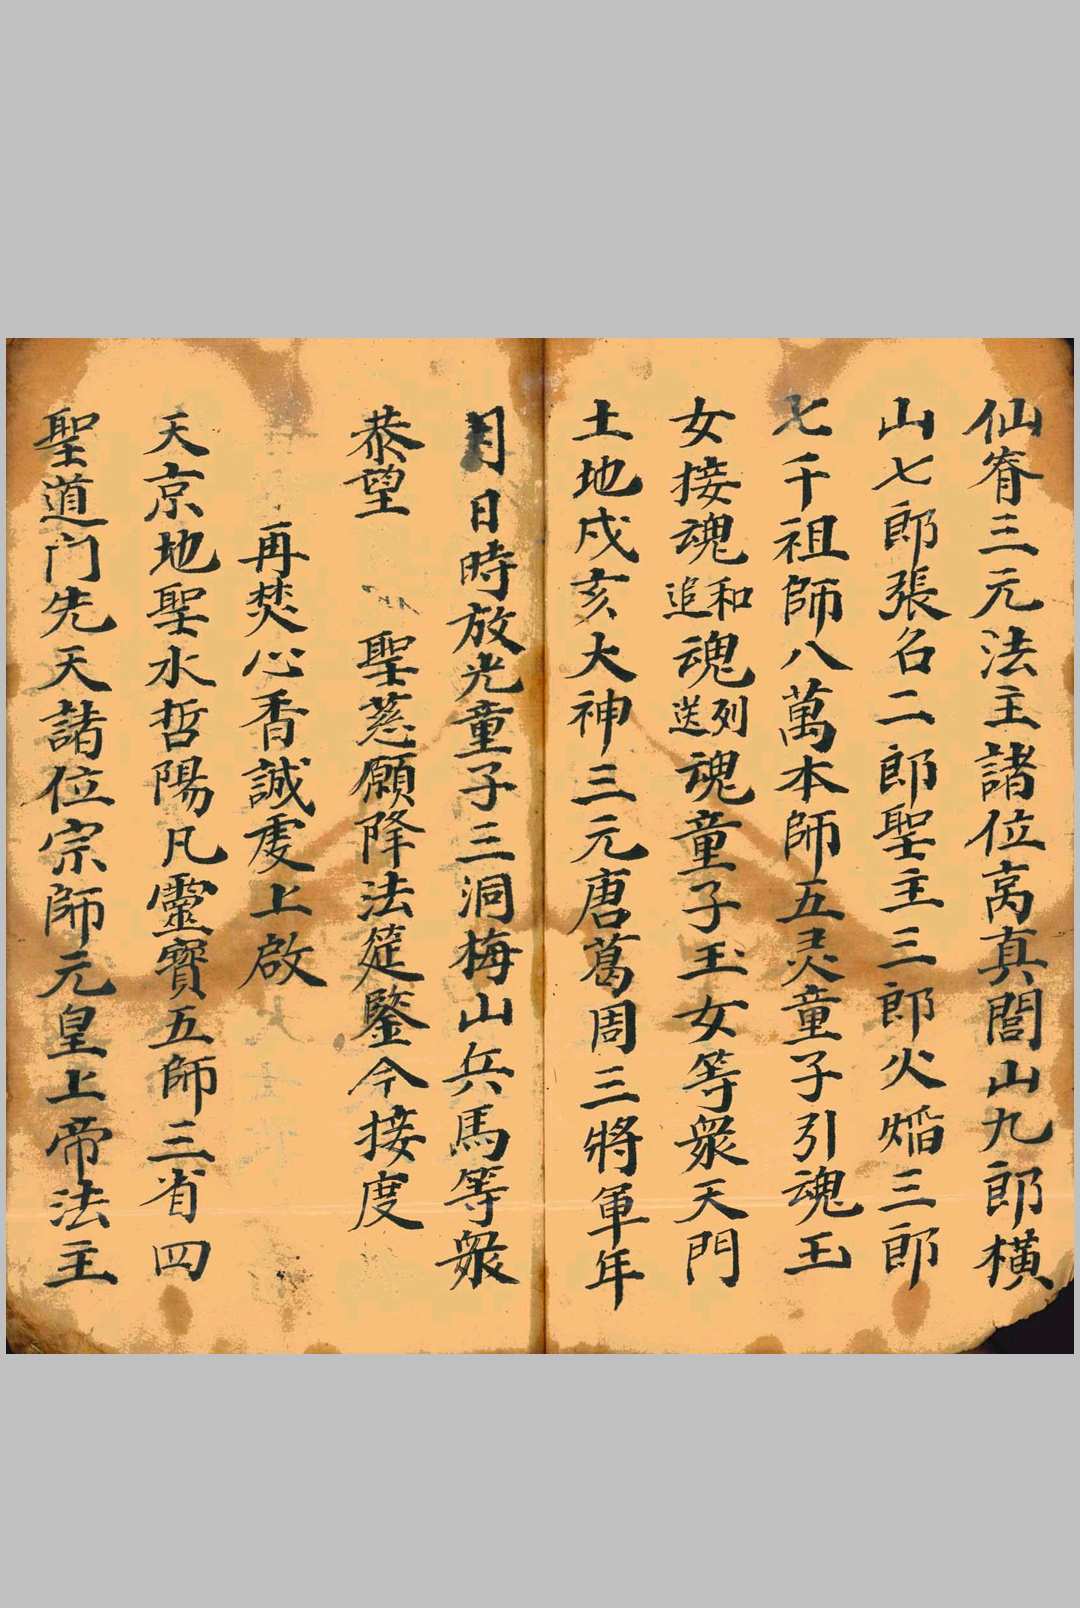 仙脊三元法主諸位高真閭山九郎橫
山七郎張名二郎聖主三郎火焰三郎
七千祖師八萬本師五灵童子引魂玉
女接魂追和魂送列魂童子玉女等衆天門
土地戌亥大神三元唐葛周三將軍年
月日時放光童子三洞梅山兵馬等衆
恭望 聖慈願降法筵鑒今接度
再焚心香誠虔上啟
天京地聖水哲陽凡靈寶五師三省四
聖道门先天諸位宗師元皇上帝法主